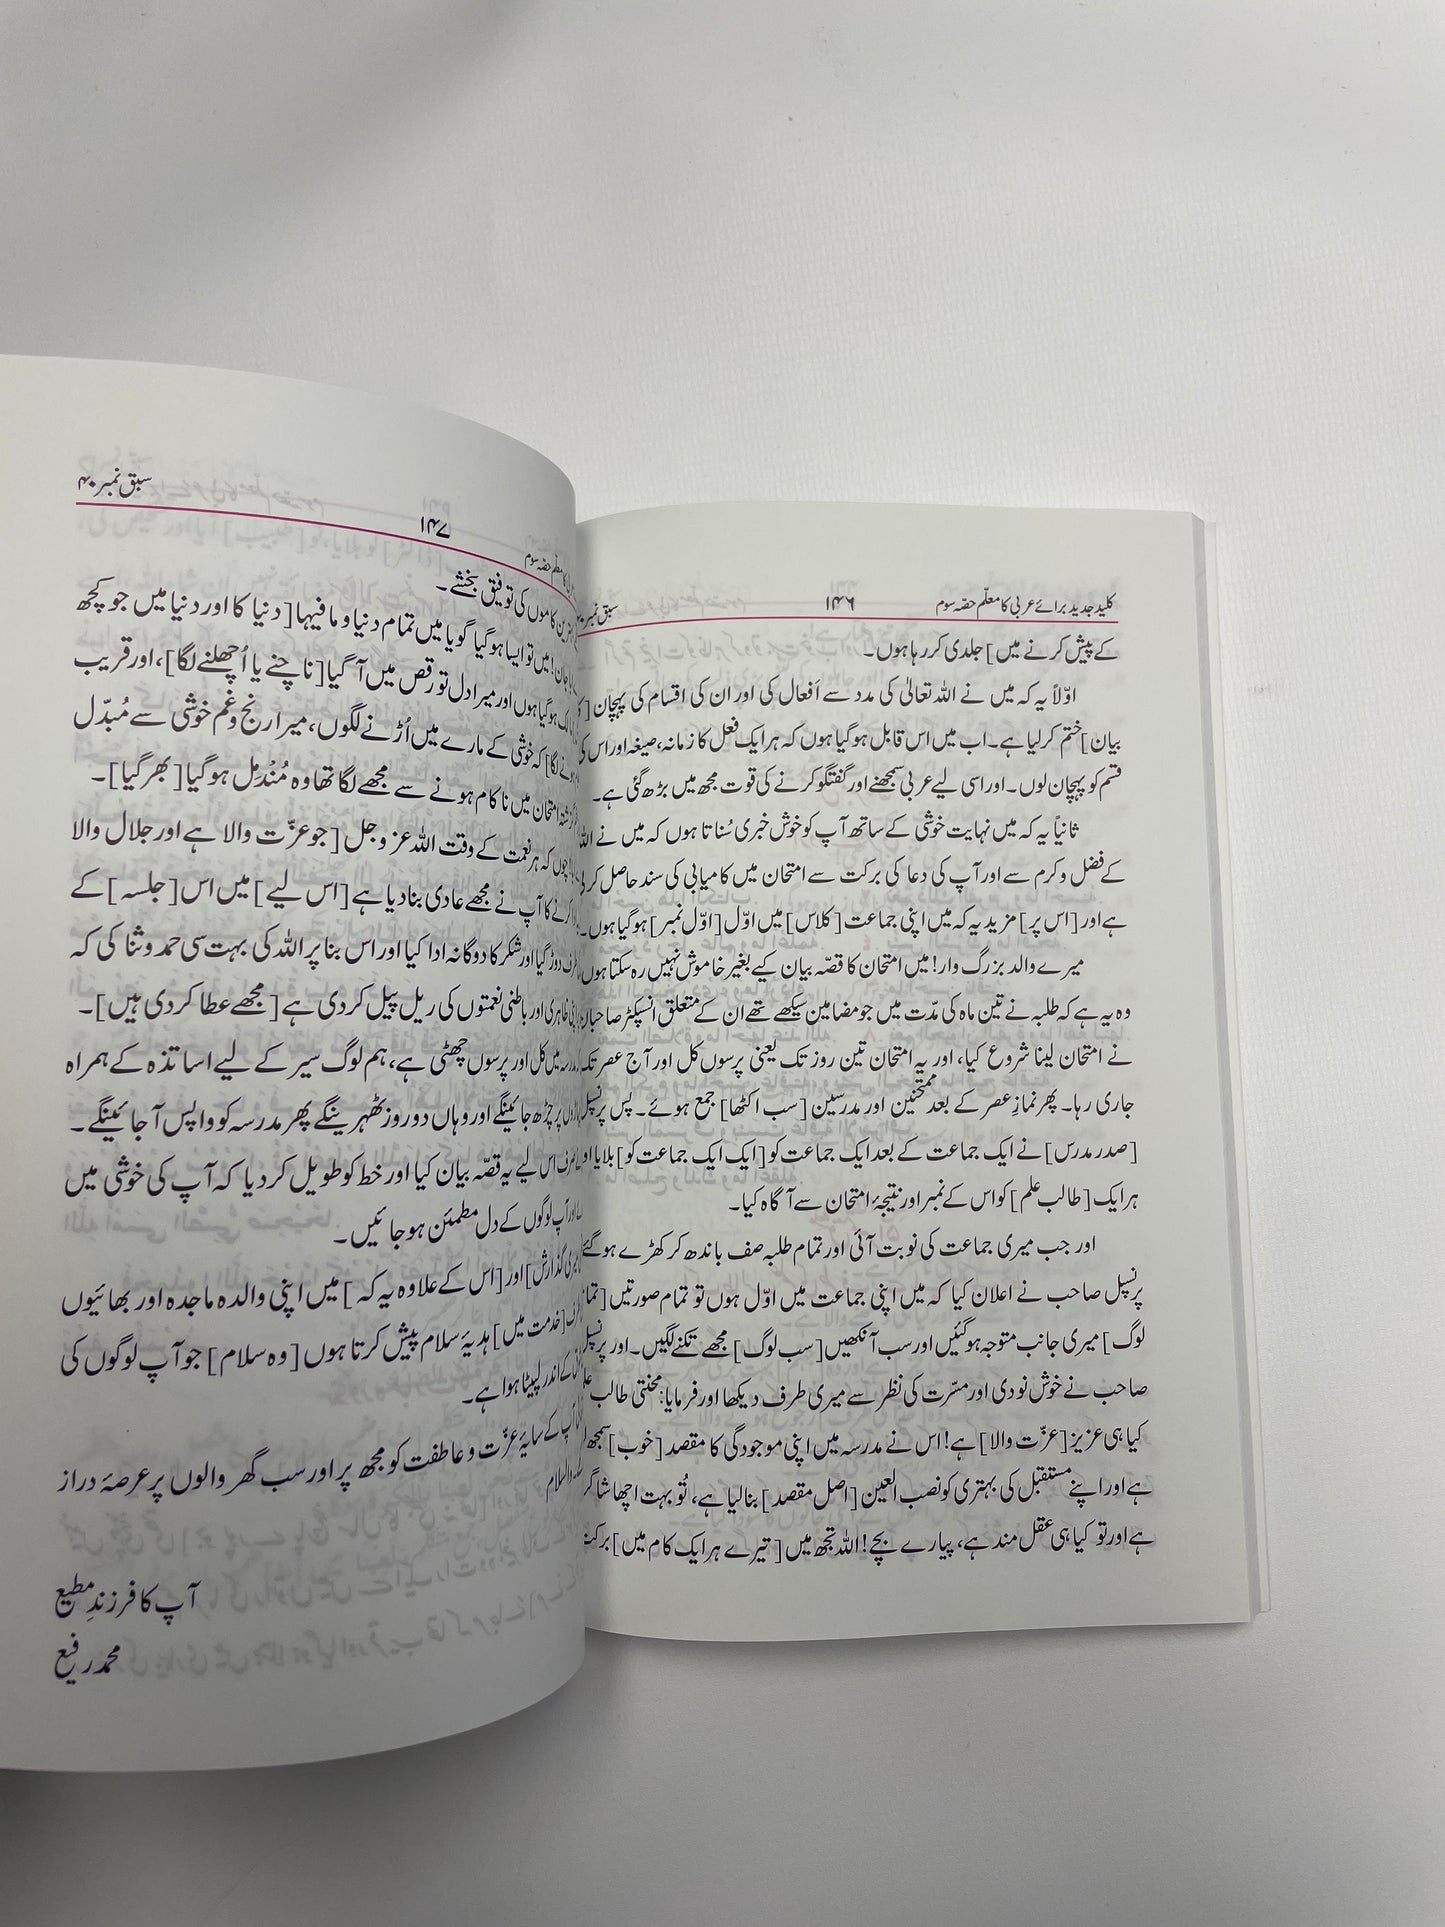 کلید جدید برائے عربی کا معلّم حصّہ سوم ۱۴۶ سبق نمبر
کے پیش کرنے میں] جلدی کر رہا ہوں۔
اوّلاً یہ کہ میں نے اللہ تعالیٰ کی مدد سے اَفعال کی اور ان کی اقسام کی پہچان [
بیان] ختم کرلیا ہے۔ اب میں اس قابل ہوگیا ہوں کہ ہر ایک فعل کا زمانہ، صیغہ اور اس کی
قسم کو پہچان لوں۔ اور اسی لیے عربی سمجھنے اور گفتگو کرنے کی قوت مجھ میں بڑھ گئی ہے۔
ثانیاً یہ کہ میں نہایت خوشی کے ساتھ آپ کو خوش خبری سُناتا ہوں کہ میں نے اللہ
کے فضل و کرم سے اور آپ کی دعا کی برکت سے امتحان میں کامیابی کی سند حاصل کرلی
ہے اور [اس پر] مزید یہ کہ میں اپنی جماعت [کلاس] میں اوّل [اوّل نمبر] ہوگیا ہوں۔
میرے والد بزرگ وار! میں امتحان کا قصّہ بیان کیے بغیر خاموش نہیں رہ سکتا ہوں
وہ یہ ہے کہ طلبہ نے تین ماہ کی مدّت میں جو مضامین سیکھے تھے ان کے متعلق انسپکٹر صاحبان
نے امتحان لینا شروع کیا، اور یہ امتحان تین روز تک یعنی پرسوں کل اور آج عصر تک
جاری رہا۔ پھر نمازِ عصر کے بعد ممتحنین اور مدرسین [سب اکٹھا] جمع ہوئے۔ پس پرنسپل
[صدر مدرس] نے ایک جماعت کے بعد ایک جماعت کو [ایک ایک جماعت کو] بلایا او
ہر ایک [طالب علم] کو اس کے نمبر اور نتیجۂ امتحان سے آگاہ کیا۔
اور جب میری جماعت کی نوبت آئی اور تمام طلبہ صف باندھ کر کھڑے ہوگئے
پرنسپل صاحب نے اعلان کیا کہ میں اپنی جماعت میں اوّل ہوں تو تمام صورتیں [تمام
لوگ] میری جانب متوجہ ہوگئیں اور سب آنکھیں [سب لوگ] مجھے تکنے لگیں۔ اور پرنسپل
صاحب نے خوش نودی اور مسرّت کی نظر سے میری طرف دیکھا اور فرمایا: محنتی طالب
کیا ہی عزیز [عزّت والا] ہے! اس نے مدرسہ میں اپنی موجودگی کا مقصد [خوب] سمجھ
ہے اور اپنے مستقبل کی بہتری کو نصب العین [اصل مقصد] بنا لیا ہے، تُو بہت اچھا شاگر
ہے اور تو کیا ہی عقل مند ہے، پیارے بچے! اللہ تجھ میں [تیرے ہر ایک کام میں] برکت
معلّم حصّہ سوم ۱۴۷ سبق نمبر ۴۰
کاموں کی توفیق بخشے۔
جان! میں تو ایسا ہوگیا گویا میں تمام دنیا و ما فیہا [دنیا کا اور دنیا میں جو کچھ
ہوگیا ہوں اور میرا دل تو رقص میں آ گیا [ناچنے یا اُچھلنے لگا]، اور قریب
کہ خوشی کے مارے میں اُڑنے لگوں، میرا رنج و غم خوشی سے مُبدّل
امتحان میں ناکام ہونے سے مجھے لگا تھا وہ مُنْدَمِل ہوگیا [بھر گیا]۔
چوں کہ ہر نعمت کے وقت اللہ عز و جل [جو عزّت والا ہے اور جلال والا
کرنے کا آپ نے مجھے عادی بنا دیا ہے [اس لیے] میں اس [جلسہ] کے
دوڑ گیا اور شکر کا دوگانہ ادا کیا اور اس بنا پر اللہ کی بہت سی حمد و ثنا کی کہ
ظاہری اور باطنی نعمتوں کی ریل پیل کر دی ہے [مجھے عطا کر دی ہیں]۔
مدرسہ میں کل اور پرسوں چھٹی ہے، ہم لوگ سیر کے لیے اساتذہ کے ہمراہ
پر چڑھ جائینگے اور وہاں دو روز ٹھہرینگے پھر مدرسہ کو واپس آ جائینگے۔
اس لیے یہ قصّہ بیان کیا اور خط کو طویل کر دیا کہ آپ کی خوشی میں
اور آپ لوگوں کے دل مطمئن ہو جائیں۔
گذارش] اور [اس کے علاوہ یہ کہ] میں اپنی والدہ ماجدہ اور بھائیوں
[خدمت میں] ہدیۂ سلام پیش کرتا ہوں [وہ سلام] جو آپ لوگوں کی
کے اندر لپیٹا ہوا ہے۔
آپ کے سایۂ عزّت و عاطفت کو مجھ پر اور سب گھر والوں پر عرصۂ دراز
والسلام
آپ کا فرزندِ مطیع
محمد رفیع